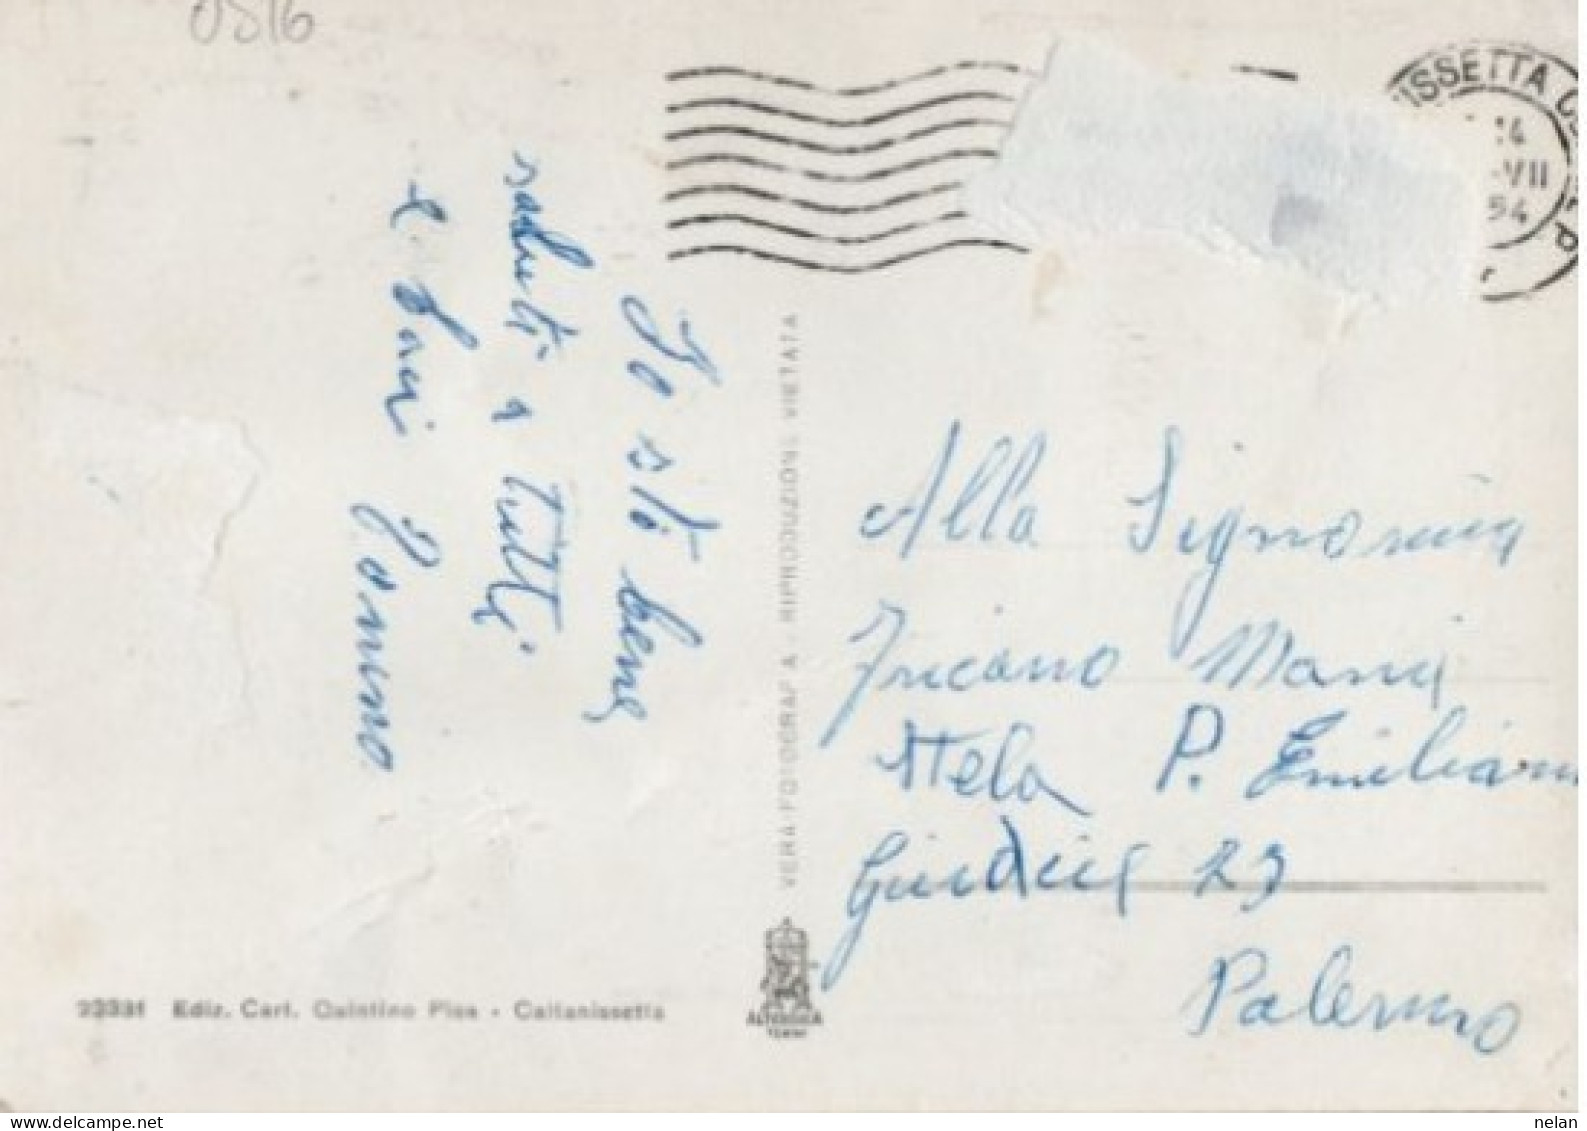 0816
ISSETTA C
14
-VII
54
P
Io stò bene
saluti a tutti
e baci
VERA FOTOGRAFIA - RIPRODUZIONE VIETATA
Alla Signorina
Fricano Maria
Stela P. Emiliani
Giudici 29
Palermo
22331 Ediz. Cart. Quintino Pica - Caltanissetta
ALTEROCCA
TERNI
nelan